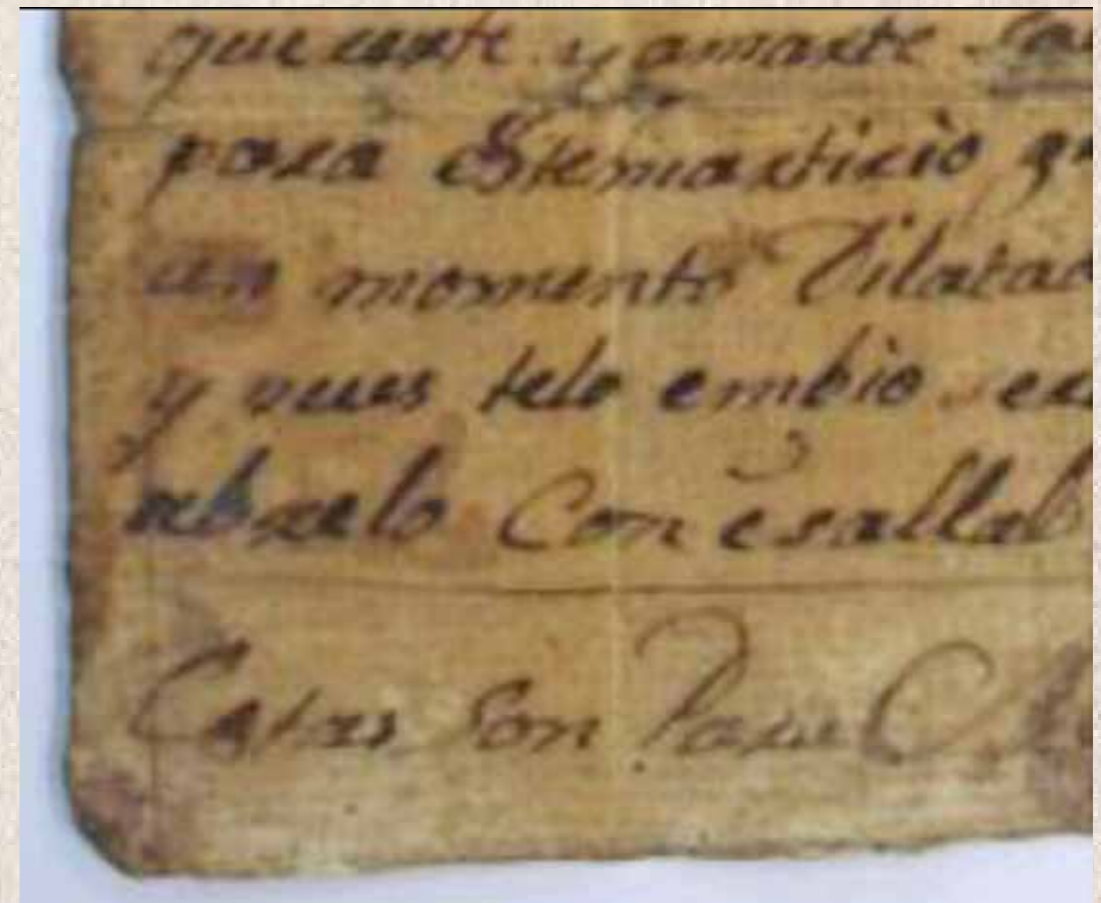 quererte y amarte
para Estemartirio
un momento Dilatad
y pues telo embio
abrelo Con esallab
Estas Son Para